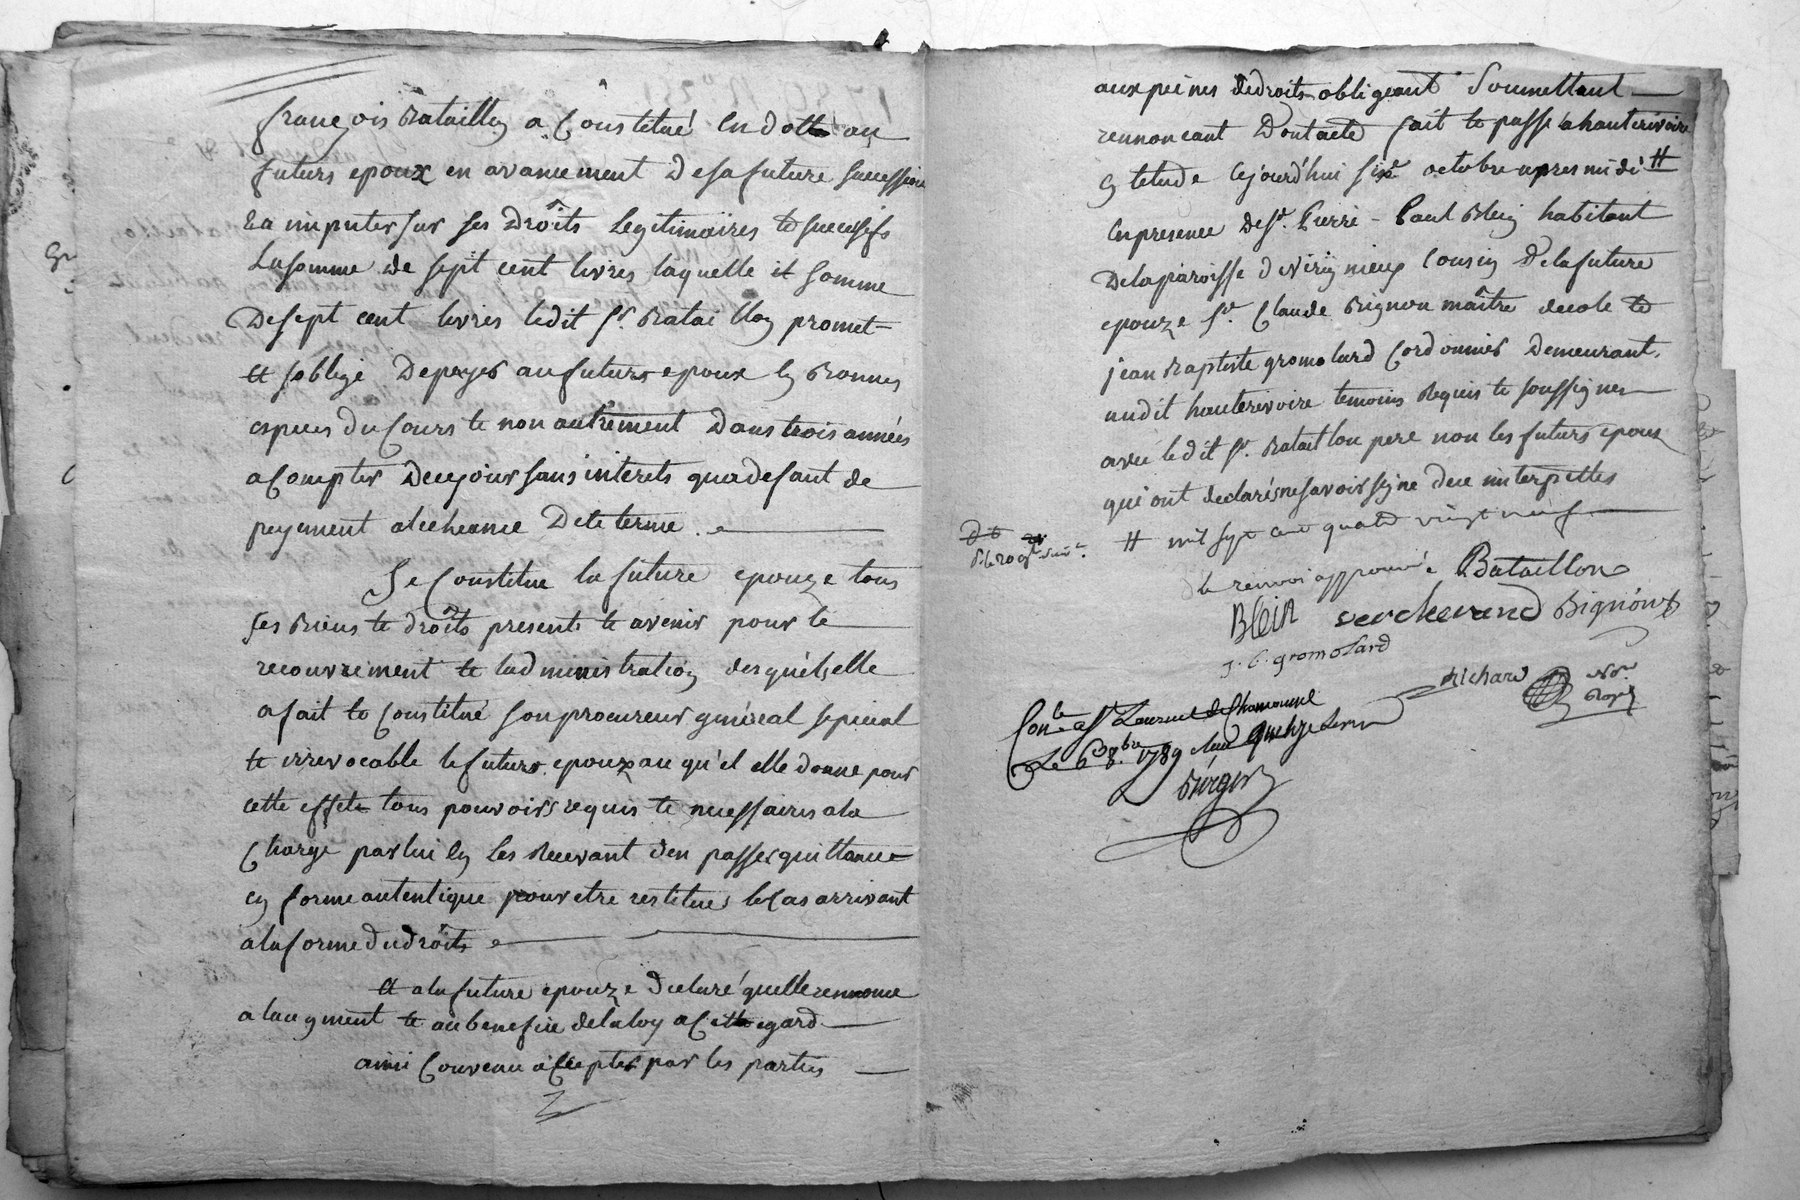 françois Bataillon a Constitué En dotte au
futurs epoux en avancement De sa future succession
Ea imputer sur ses Droits Legitimaires et successifs
La somme de sept cent livres laquelle it somme
De sept cent livres ledit Sr. Bataillon promet
et soblige De payer au futurs epoux En Bonnes
especes Du Cours et non autrement Dans trois années
a Compter De ce jour sans interets qu'a defaut de
payement a l'echeance De ce terme.
Se Constitue la future epouze tous
ses Biens et droits presents et avenir pour le
recouvrement et l'administration desquels elle
a fait et Constitué son procureur général special
et irrevocable le futurs epoux au qu'el elle donne pour
cette effete tous pouvoirs requis et necessaires a la
Charge par lui En Les Recevant d'en passer quittance
En forme autentique pour etre restitues le Cas arrivant
a la forme Du droits
et a la future epouze declaré quelle rennonce
a laugment et au benefice de la loy a cette egard
ainsi Convenu accepter par les parties
aux peines de droits obligeant Soumettant
rennonceant Dont acte fait et passé a hauterivoire
En l'etude Cejourd'hui six octobre apres midi #
En presence de Sr. Pierre - Paul Blein habitant
De la paroisse de virignieux Cousin De la future
epouze Sr. Claude Bignon maître decole et
jean Baptiste gromolard Cordonnier Demeurant
audit hauterevoire temoins Requis et soussignes
avec ledit Sr. Bataillon pere non les futurs epoux
qui ont declarés ne savoir signe de ce interpelles
# mil sept cent quatre vingt neuf
le renvoi approuvé Bataillon
Blein vercherand Bignon
J. B. gromolard
Richard No.re
Royal
Con.le a St. Laurent de Chamousset
Le 6 8.bre 1789 Reçu quinze livres